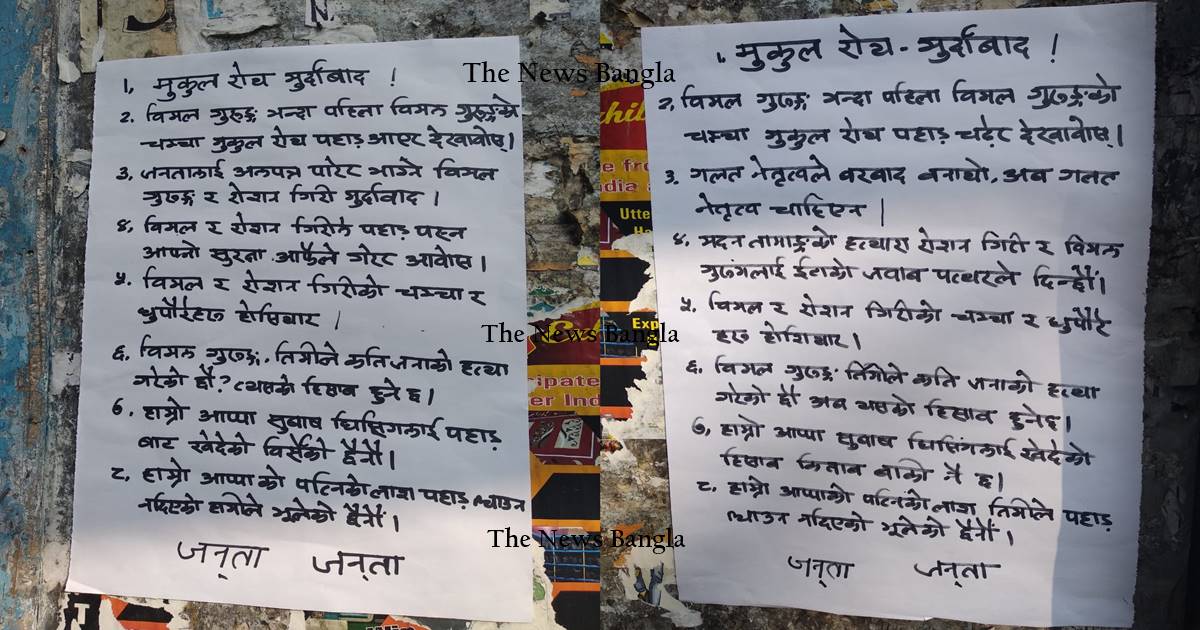 १, मुकुल रोय मुर्दाबाद !
२. विमल गुरुङ्ग भन्दा पहिला विमल गुरुङ्गको
चम्चा मुकुल रोय पहाड आएर देखावोस्।
३, जनतालाई अलपत्र पारेर भाग्ने विमल
गुरुङ्ग र रोशन गिरी मुर्दाबाद।
४, विमल र रोशन गिरीले पहाड पस्न
आफ्नो सुरक्षा आफैले गरेर आवोस।
५. विमल र रोशन गिरीको चम्चा र
धुपौरेहरु होसियार |
६. विमल गुरुङ्ग. तिमीले कति जनाको हत्या
गरेको छौ? त्यसको हिसाब हुने छ।
७. हाम्रो आप्पा सुवाष घिसिंगलाई पहाड
बाट खेदेको विर्सेको छैनौं।
८, हाम्रो आप्पा को पत्निको लाश पहाड ल्याउन
नदिएको हामीले भूलेको छैनौं।
जनता जनता
१. मुकुल रोय - मुर्दाबाद !
२, विमल गुरुङ्ग भन्दा पहिला विमल गुरुङ्गको
चम्चा मुकुल रोय पहाड चढेर देखावोस्।
३. गलत नेतृत्वले बरबाद बनायो, अब गलत
नेतृत्व चाहिएन |
४. मदन तामाङ्गको हत्यारा रोशन गिरी र विमल
गुरुंगलाई ईटाको जवाब पत्थरले दिन्छौं।
५. विमल र रोशन गिरीको चम्चा र धुपौरे
हरु होशियार।
६. विमल गुरुङ्ग. तिमीले कति जनाको हत्या
गरेको छौ अब यसको हिसाब हुनेछ।
७, हाम्रो आप्पा सुवाष घिसिंगलाई खेदेको
हिसाब किताब बाकी नै छ।
८, हाम्रो आप्पाको पत्निको लाश तिमीले पहाड
ल्याउन नदिएको भूलेको छैनौं।
जनता जनता
The News Bangla
The News Bangla
The News Bangla